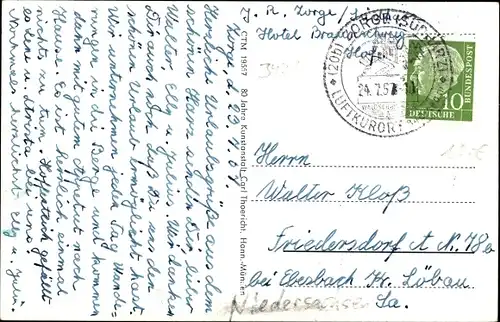 Zorge, d. 23.7.57.
Herzliche Urlaubsgrüße aus dem
schönen Harz senden Dir, lieber
Walter, Elly u. Julius. Wir danken
Dir auch noch, daß Du uns den
schönen Urlaub ermöglicht hast.
Wir unternehmen jeden Tag Wande-
rungen in die Berge und kommen
dann mit gutem Appetit nach
Hause. Es ist herrlich einmal
nichts zu tun. Hoffentlich gefällt
es Lene u. bei uns.
Nochmals herzlichst Elly u. Juli
CTM 19557 80 Jahre Kunstanstalt Carl Thoericht, Hann.-Münden
J. R. Zorge/
Hotel Braunschweiger
Hof
(20b) ZORGE (SÜDHARZ)
24.7.57
LUFTKURORT
10
DEUTSCHE
BUNDESPOST
Herrn
Walter Kloß
Friedersdorf A N. 78b
bei Ebesbach Kr. Löbau
Sa.
Niedersachsen